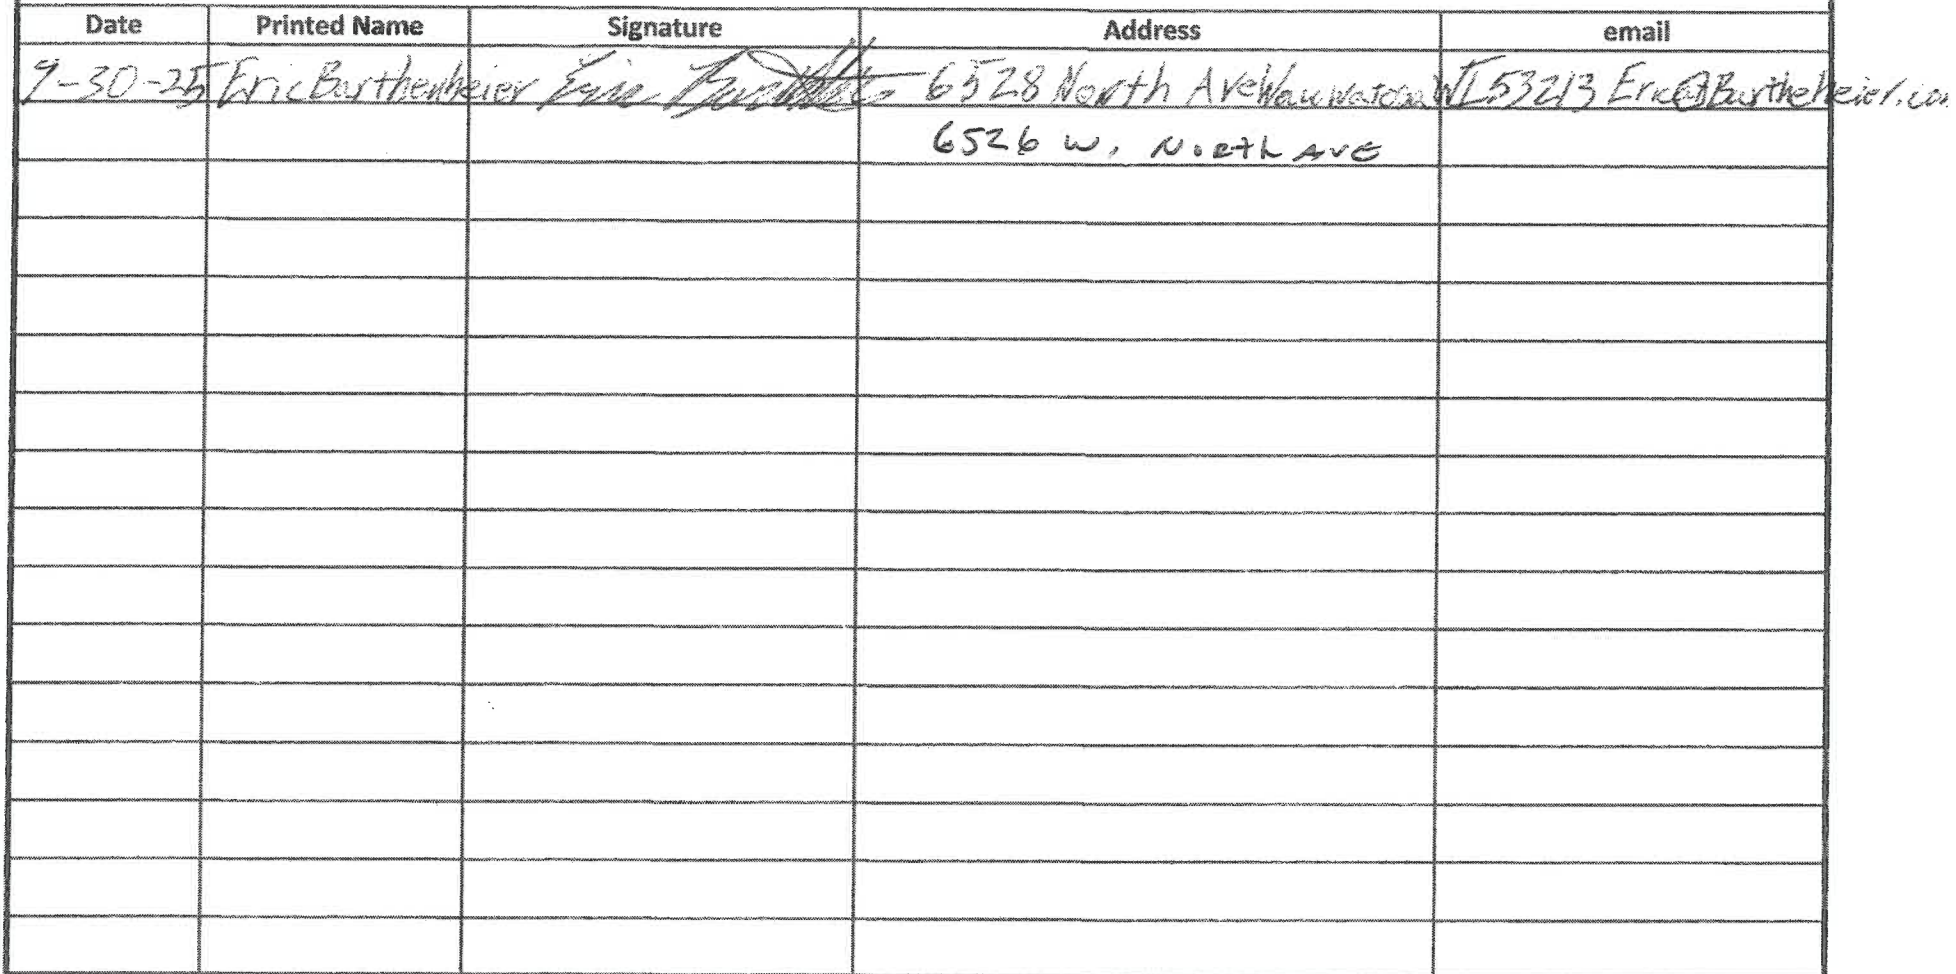 Date Printed Name Signature Address email
9-30-25 Eric Barthenheier Eric 6528 North Ave Wauwatosa WI 53213 Eric@Bartheheier.com
6526 W. North AVE